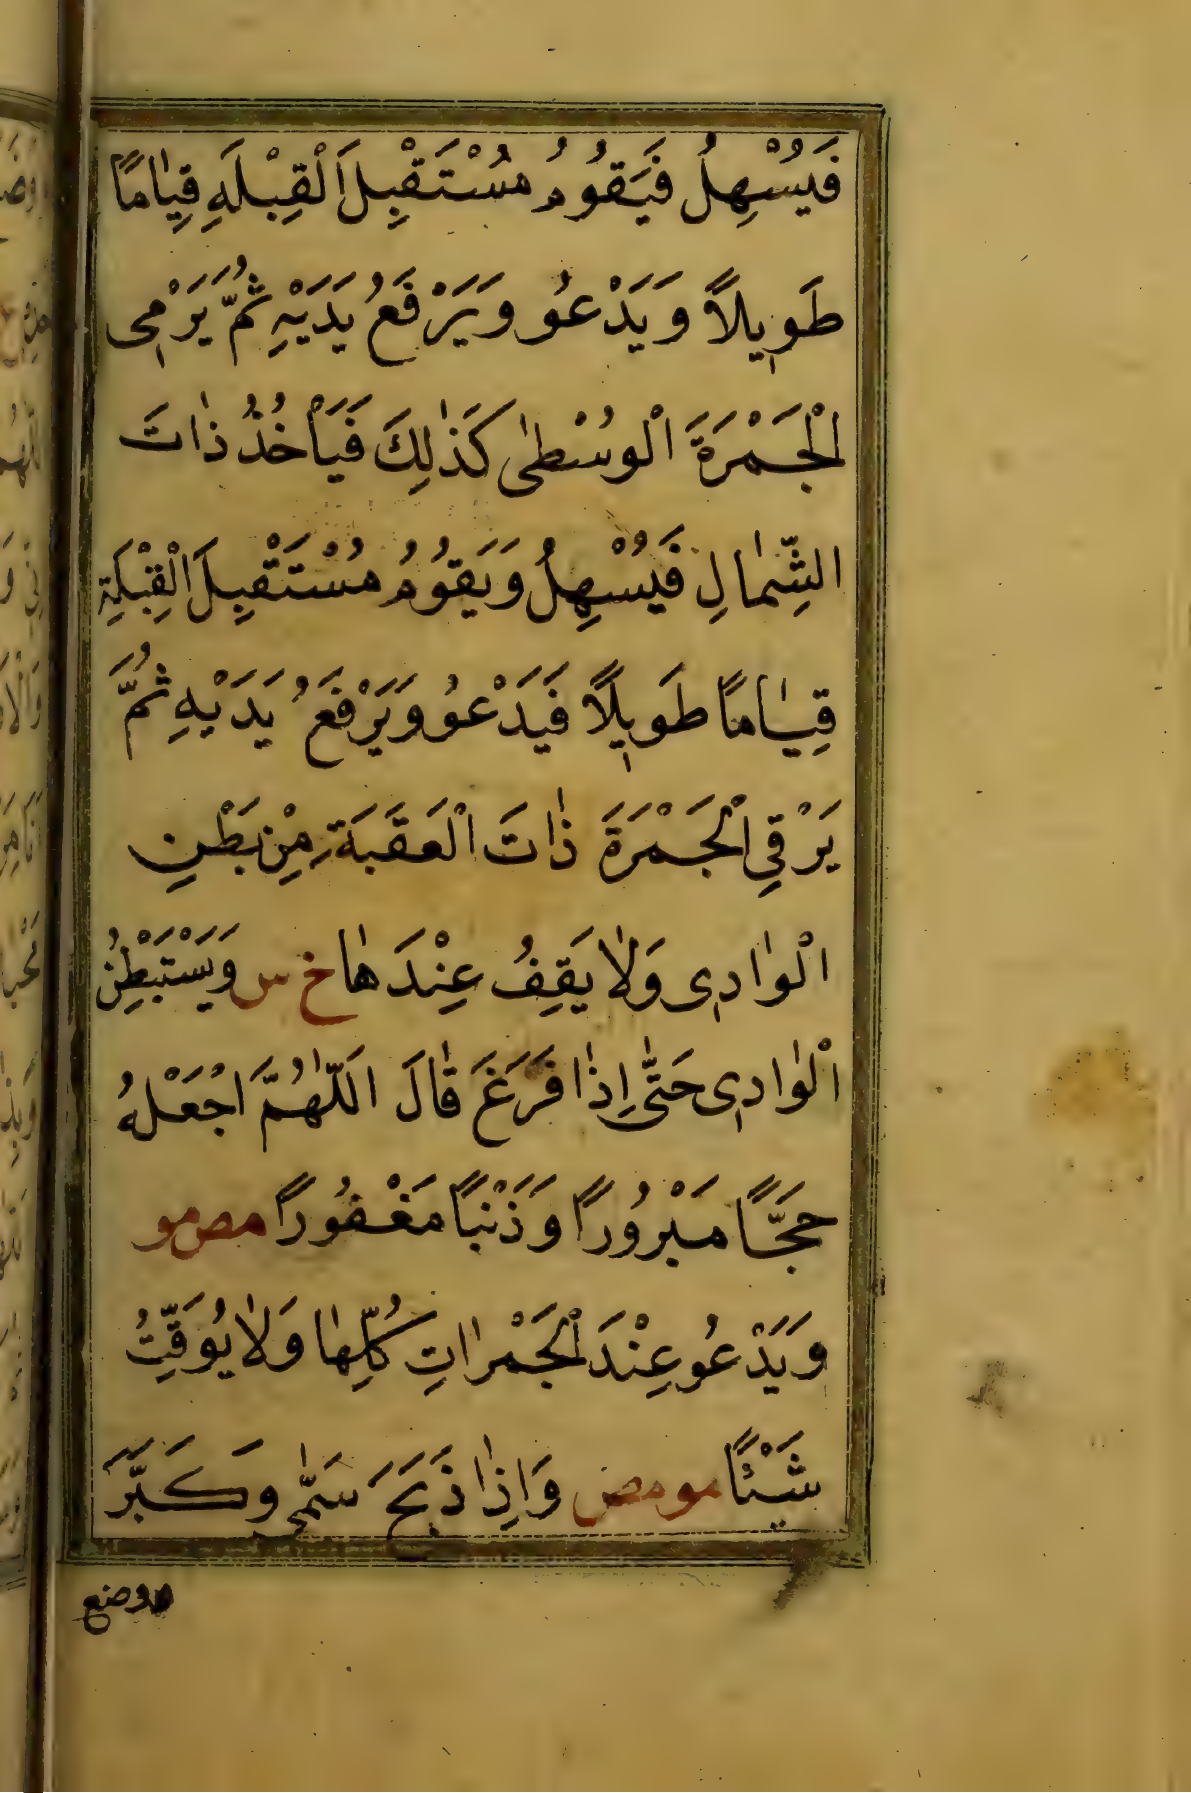 فَيُسْهِلُ فَيَقُومُ مُسْتَقْبِلَ الْقِبْلَةِ قِيَامًا
طَوِيلًا وَيَدْعُو وَيَرْفَعُ يَدَيْهِ ثُمَّ يَرْمِي
الْجَمْرَةَ الْوُسْطٰى كَذٰلِكَ فَيَأْخُذُ ذَاتَ
الشِّمَالِ فَيُسْهِلُ وَيَقُومُ مُسْتَقْبِلَ الْقِبْلَةِ
قِيَامًا طَوِيلًا فَيَدْعُو وَيَرْفَعُ يَدَيْهِ ثُمَّ
يَرْقِي الْجَمْرَةَ ذَاتَ الْعَقَبَةِ مِنْ بَطْنِ
الْوَادِي وَلَا يَقِفُ عِنْدَهَا خ س وَيَسْتَبْطِنُ
الْوَادِي حَتّٰى اِذَا فَرَغَ قَالَ اَللّٰهُمَّ اجْعَلْهُ
حَجًّا مَبْرُورًا وَذَنْبًا مَغْفُورًا مص مو
وَيَدْعُو عِنْدَ الْجَمَرَاتِ كُلِّهَا وَلَا يُوَقِّتُ
شَيْئًا مو مص وَاِذَا ذَبَحَ سَمّٰى وَكَبَّرَ
ووضع